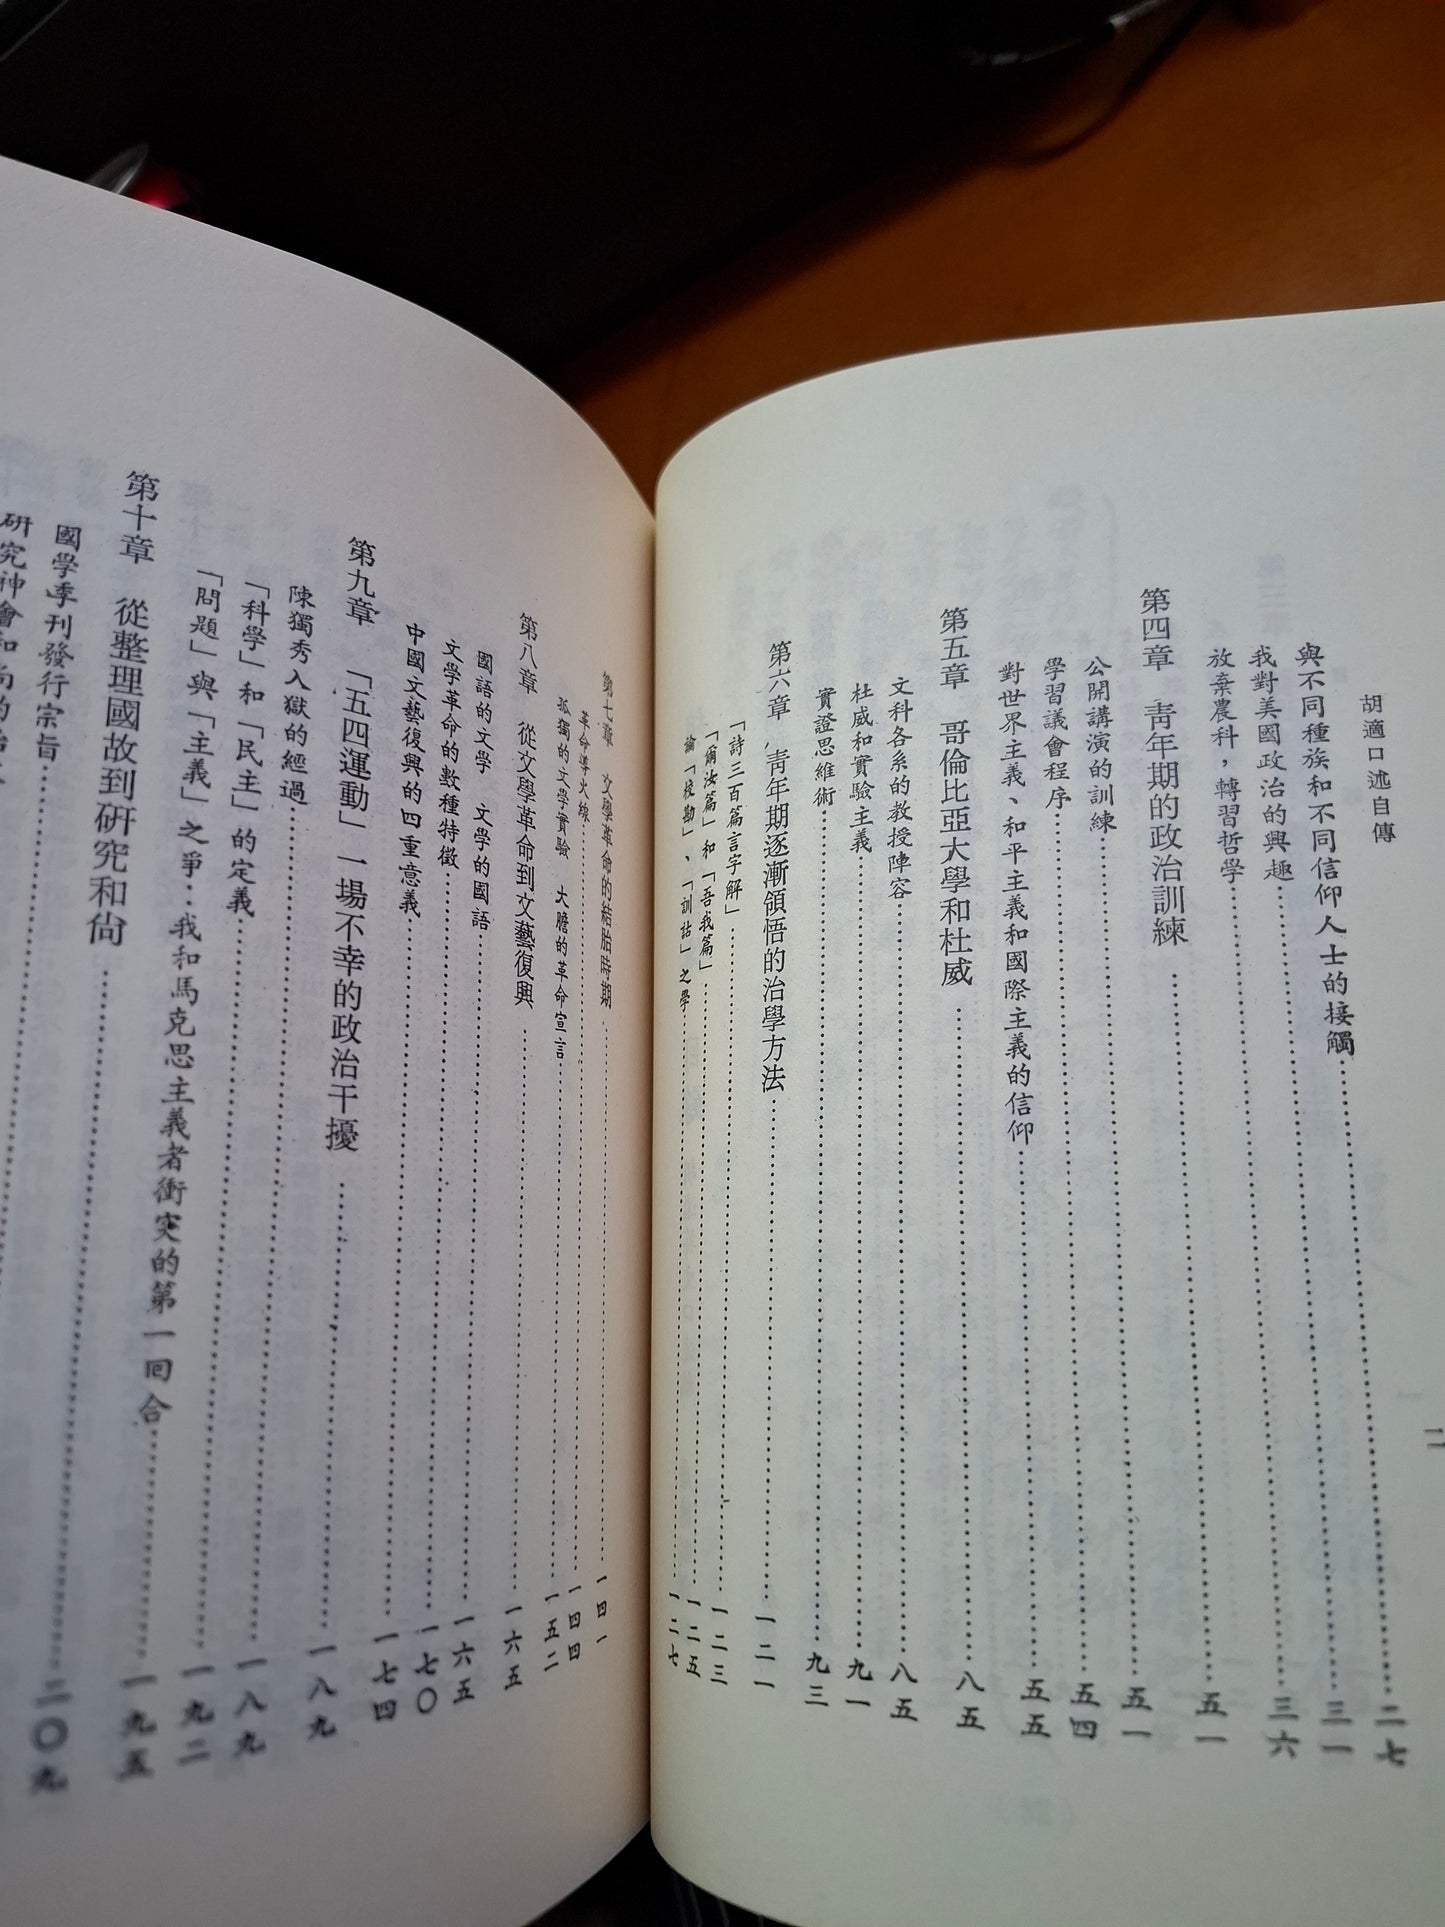 胡適口述自傳
二
與不同種族和不同信仰人士的接觸……二七
我對美國政治的興趣……三一
放棄農科，轉習哲學……三六
第四章　青年期的政治訓練……五一
公開講演的訓練……五一
學習議會程序……五四
對世界主義、和平主義和國際主義的信仰……五五
第五章　哥倫比亞大學和杜威……八五
文科各系的教授陣容……八五
杜威和實驗主義……九一
實證思維術……九三
第六章　青年期逐漸領悟的治學方法……一二一
「詩三百篇言字解」……一二三
「爾汝篇」和「吾我篇」……一二五
論「校勘」、「訓詁」之學……一二七
第七章　文學革命的結胎時期……一四一
革命導火線……一四四
孤獨的文學實驗　大膽的革命宣言……一五二
第八章　從文學革命到文藝復興……一六五
國語的文學　文學的國語……一六五
文學革命的數種特徵……一七〇
中國文藝復興的四重意義……一七四
第九章　「五四運動」一場不幸的政治干擾……一八九
陳獨秀入獄的經過……一八九
「科學」和「民主」的定義……一九二
「問題」與「主義」之爭：我和馬克思主義者衝突的第一回合……一九五
第十章　從整理國故到研究和尚……二〇九
國學季刊發行宗旨……
研究神會和尚的